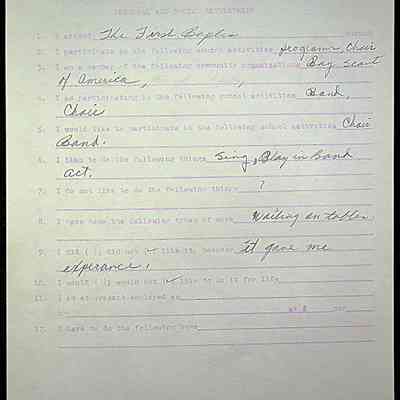 PERSONAL AND SOCIAL ADJUSTMENT
1. I attend The First Baptis church
2. I participate in the following school activities programs, Choir
3. I am a member of the following community organizations Boy Scout
of America,
4. I am participating in the following school activities Band,
Choir
5. I would like to participate in the following school activities Choir
Band.
6. I like to do the following things Sing, Play in Band
act.
7. I do not like to do the following things ?
8. I have done the following types of work Waiting on tables
9. I did ( ) did not like it, because it gave me
experance.
10. I would ( ) would not like to do it for life
11. I am at present employed as
at $ per
12. I have to do the following home